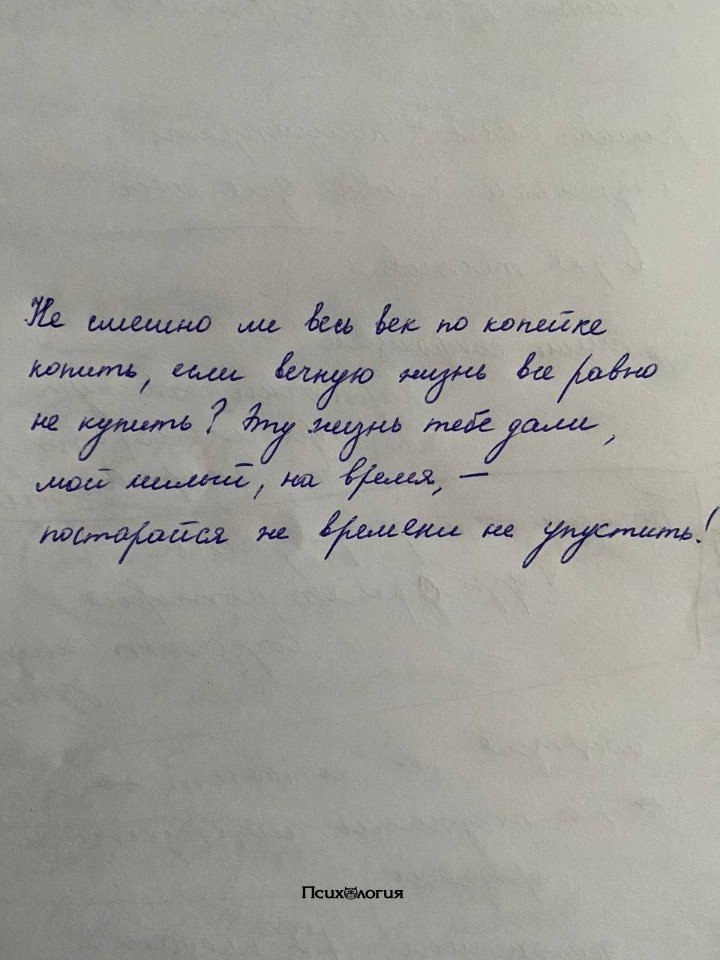 Не смешно ли весь век по копейке
копить, если вечную жизнь все равно
не купить? Эту жизнь тебе дали,
мой милый, на время, —
постарайся же времени не упустить!
Психология